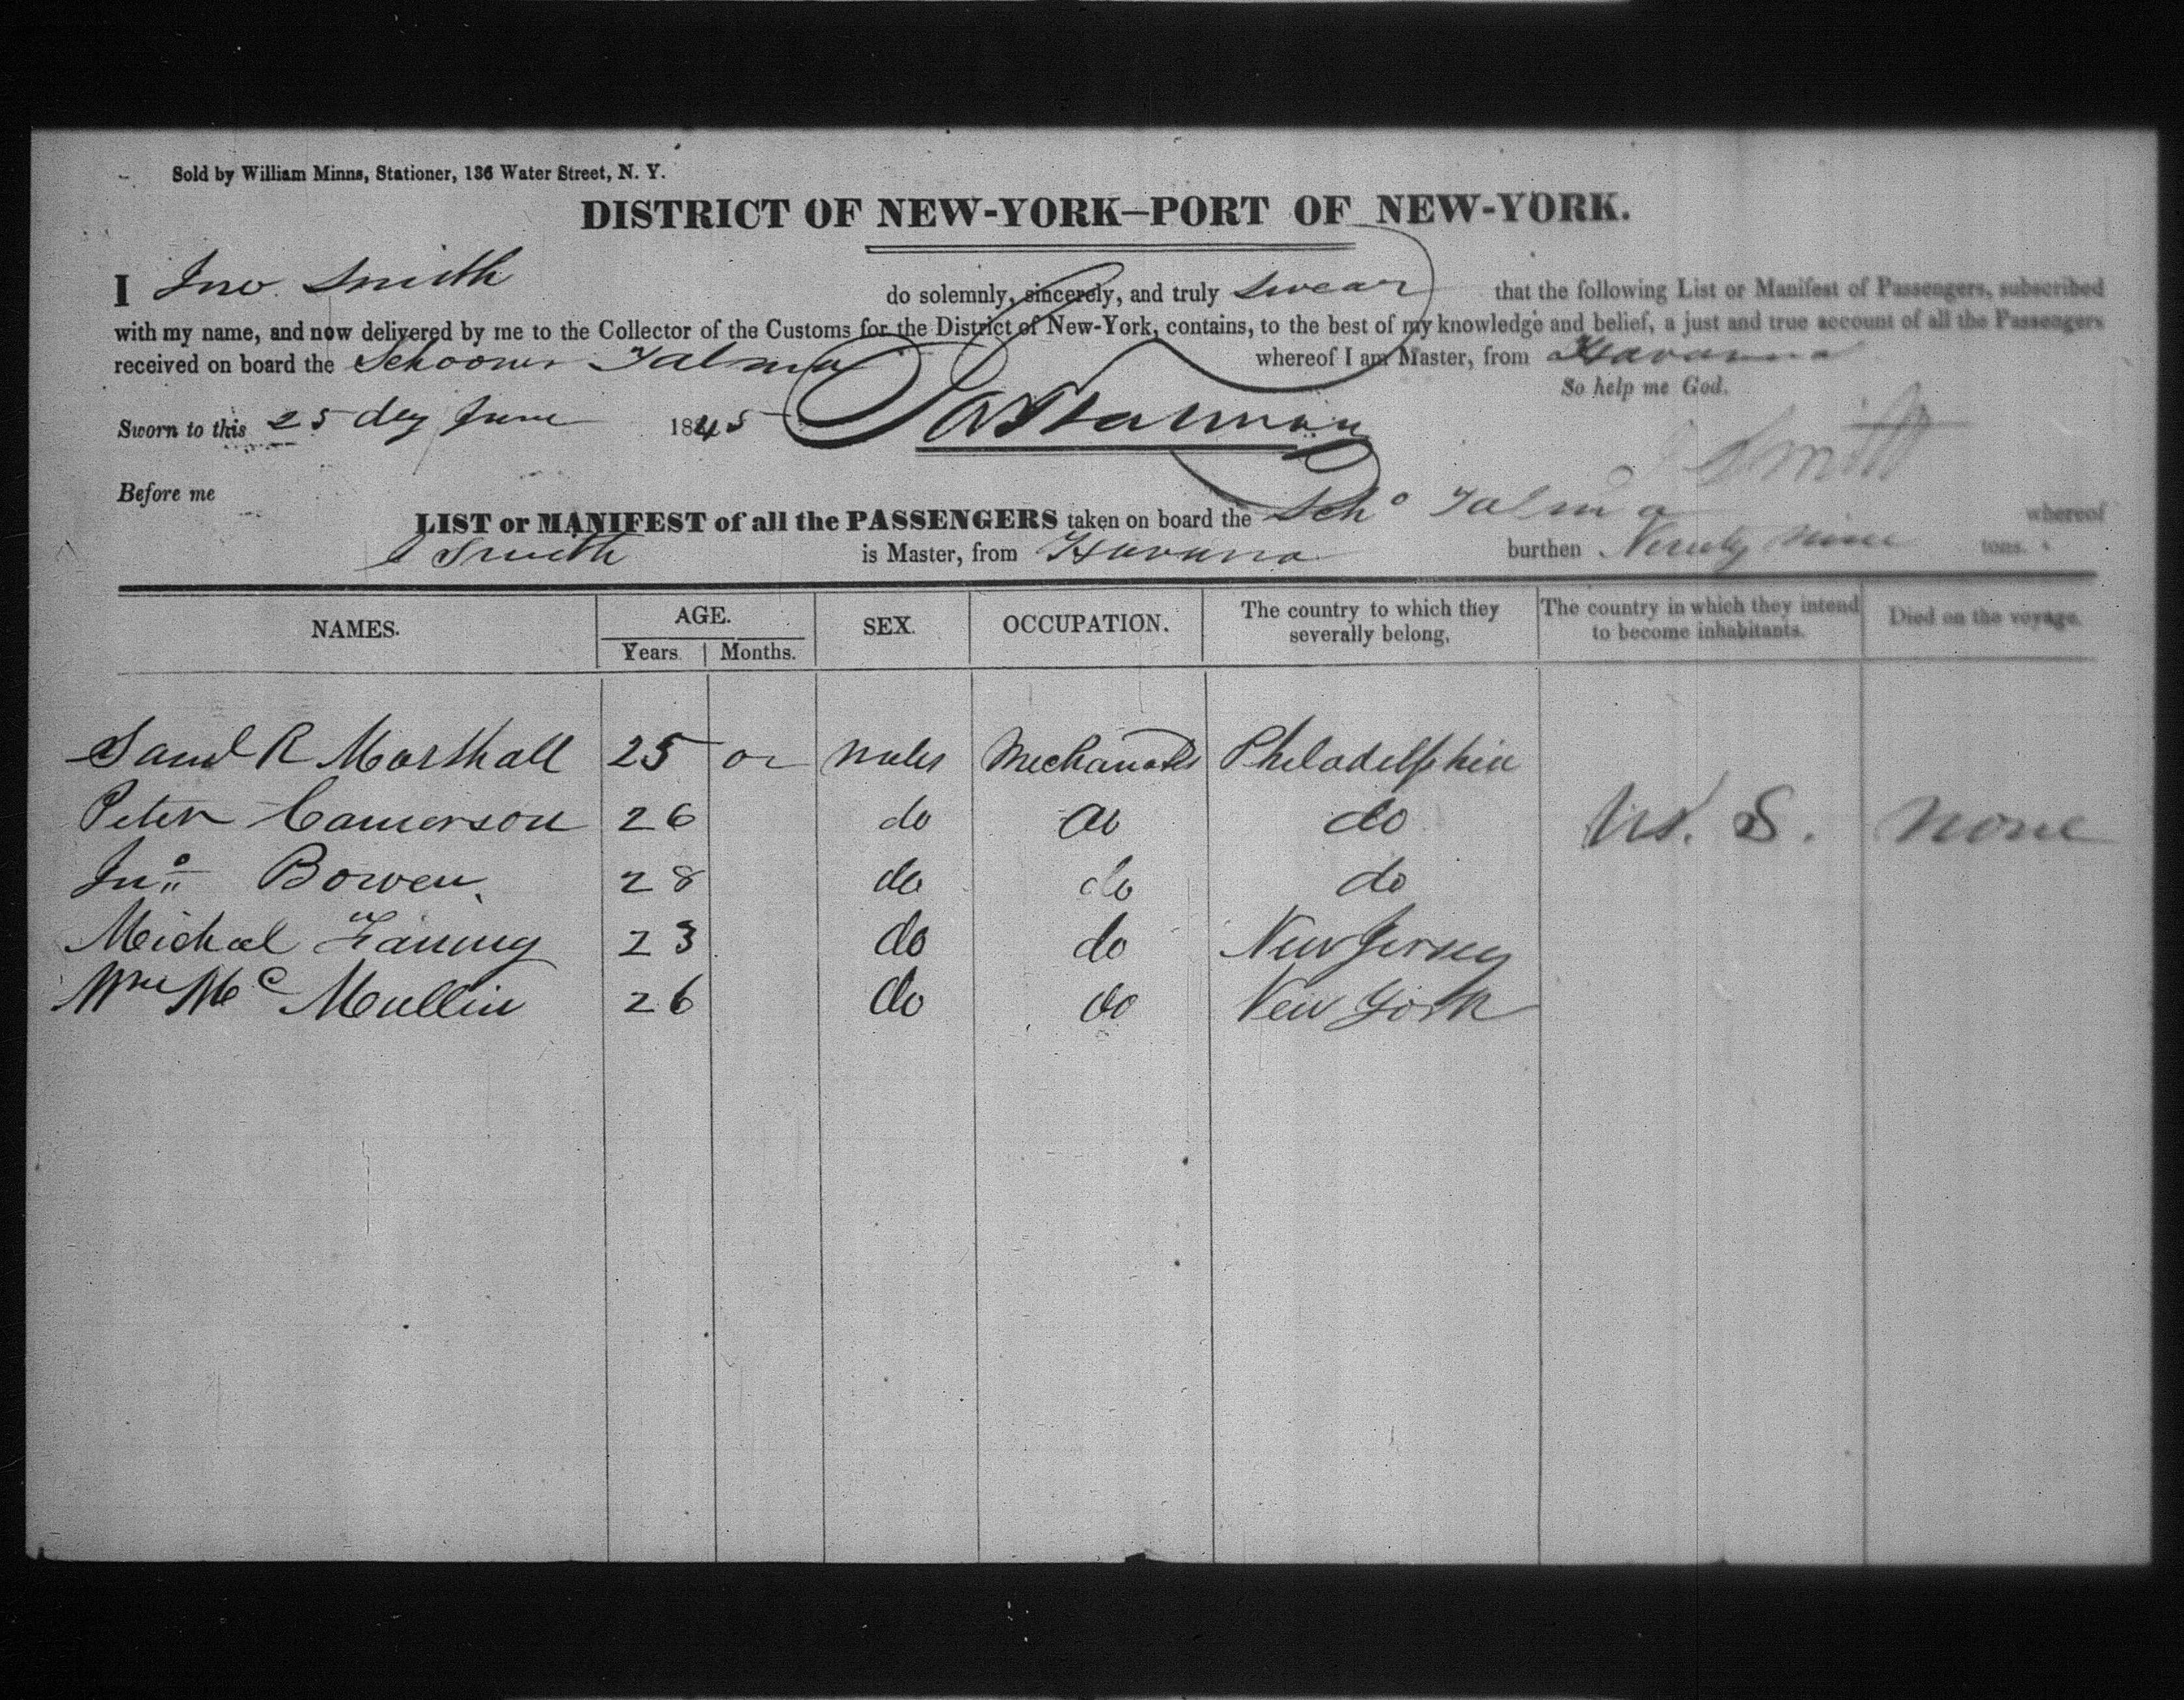 Sold by William Minns, Stationer, 136 Water Street, N. Y.
DISTRICT OF NEW-YORK—PORT OF NEW-YORK.
I Jno Smith do solemnly, sincerely, and truly swear that the following List or Manifest of Passengers, subscribed
with my name, and now delivered by me to the Collector of the Customs for the District of New-York, contains, to the best of my knowledge and belief, a just and true account of all the Passengers
received on board the Schooner Talma whereof I am Master, from Havanna
So help me God.
Sworn to this 25 day June 1845
J Smith
Before me
LIST or MANIFEST of all the PASSENGERS taken on board the Scho Talma whereof
J Smith is Master, from Havana burthen Ninety nine tons.
NAMES. AGE. SEX. OCCUPATION. The country to which they severally belong, The country in which they intend to become inhabitants. Died on the voyage.
Years. Months.
Saml R Marshall 25 males Mechanicks Philadelphia
Peter Camerson 26 do do do U. S. None
Jno Bowen 28 do do do
Michael Fanning 23 do do New Jersey
Wm Mc Mullin 26 do do New York